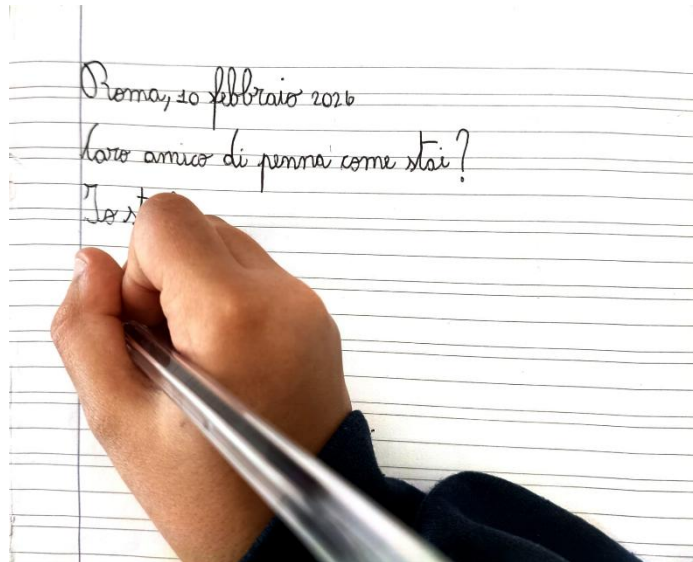 Roma, 10 febbraio 2026
Caro amico di penna come stai?
Io